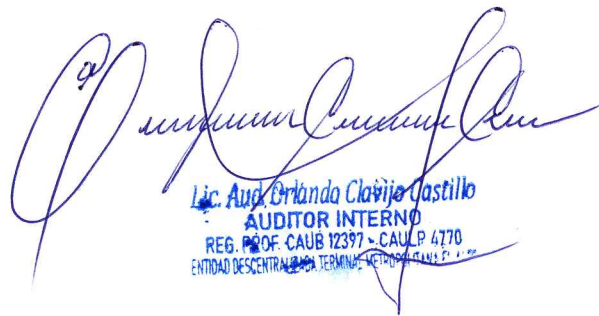 Lic. Aud. Orlando Clavijo Castillo
AUDITOR INTERNO
REG. PROF. CAUB 12397 - CAULP 4770
ENTIDAD DESCENTRALIZADA TERMINAL METROPOLITANA